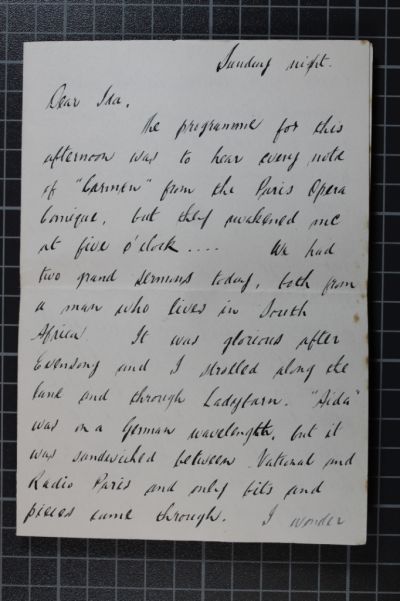 Sunday night.
Dear Ida,
The programme for this
afternoon was to hear every note
of "Carmen" from the Paris Opera
Comique, but they awakened me
at five o'clock .... We had
two grand sermons today, both from
a man who lives in South
Africa It was glorious after
Evensong and I strolled along the
lane and through Ladybarn. "Aida"
was on a German wavelength, but it
was sandwiched between National and
Radio Paris and only bits and
pieces came through. I wonder